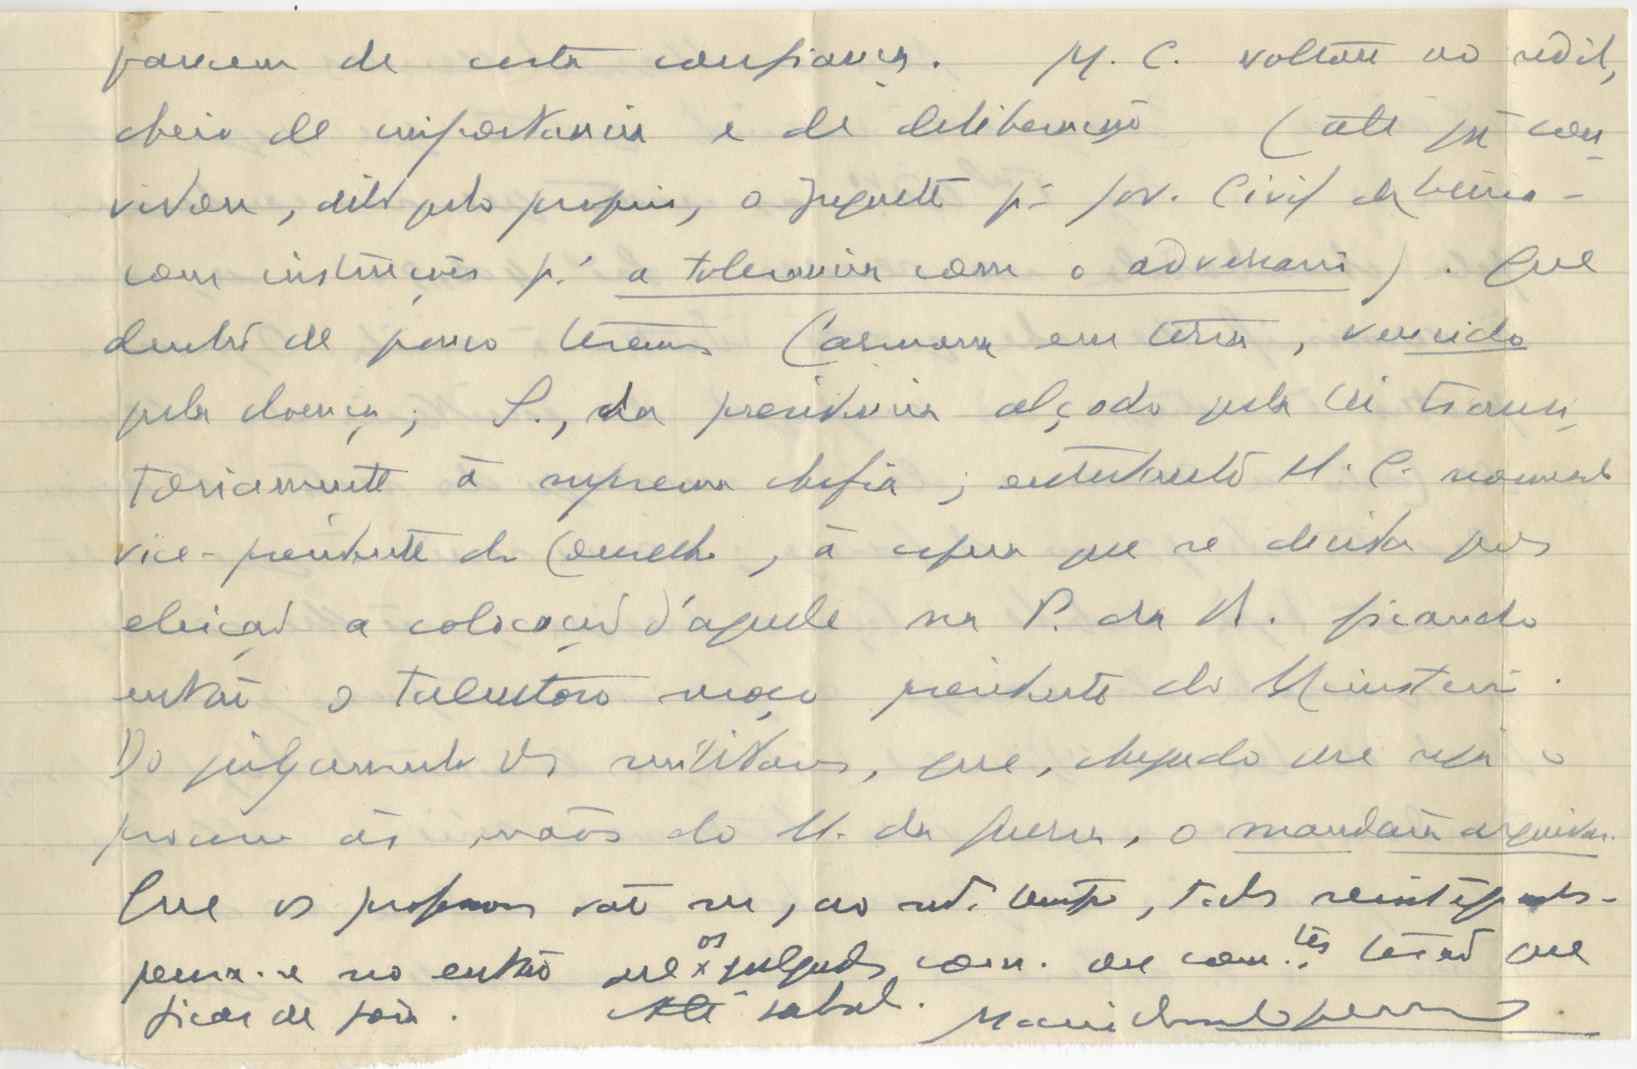 parecem de certa confiança. M. C. voltou ao redil,
cheio de importancia e de deliberação (até já con-
vidou, dito pelo proprio, o p.ª Gov. Civil da
com instruções p.ª a tolerancia com o adversario). Que
dentro de pouco teremos Carmona em terra, vencido
pela doença; S., da presidencia alçado pela lei transi-
toriamente à suprema chefia; entretanto M. C. nomeado
vice-presidente do Conselho, à espera que se decida por
eleição a colocação d'aquele na P. da R. ficando
então o talentoso moço presidente do Ministerio.
Do julgamento dos militares, que, chegado que seja o
processo ás mãos do M. da Guerra, o mandará arquivar.
Que os professores vão ser, ao mesmo tempo, todos reintegrados -
pensa-se no entanto que os julgados com. ou com.tes terão que
ficar de fora. Até sabado.